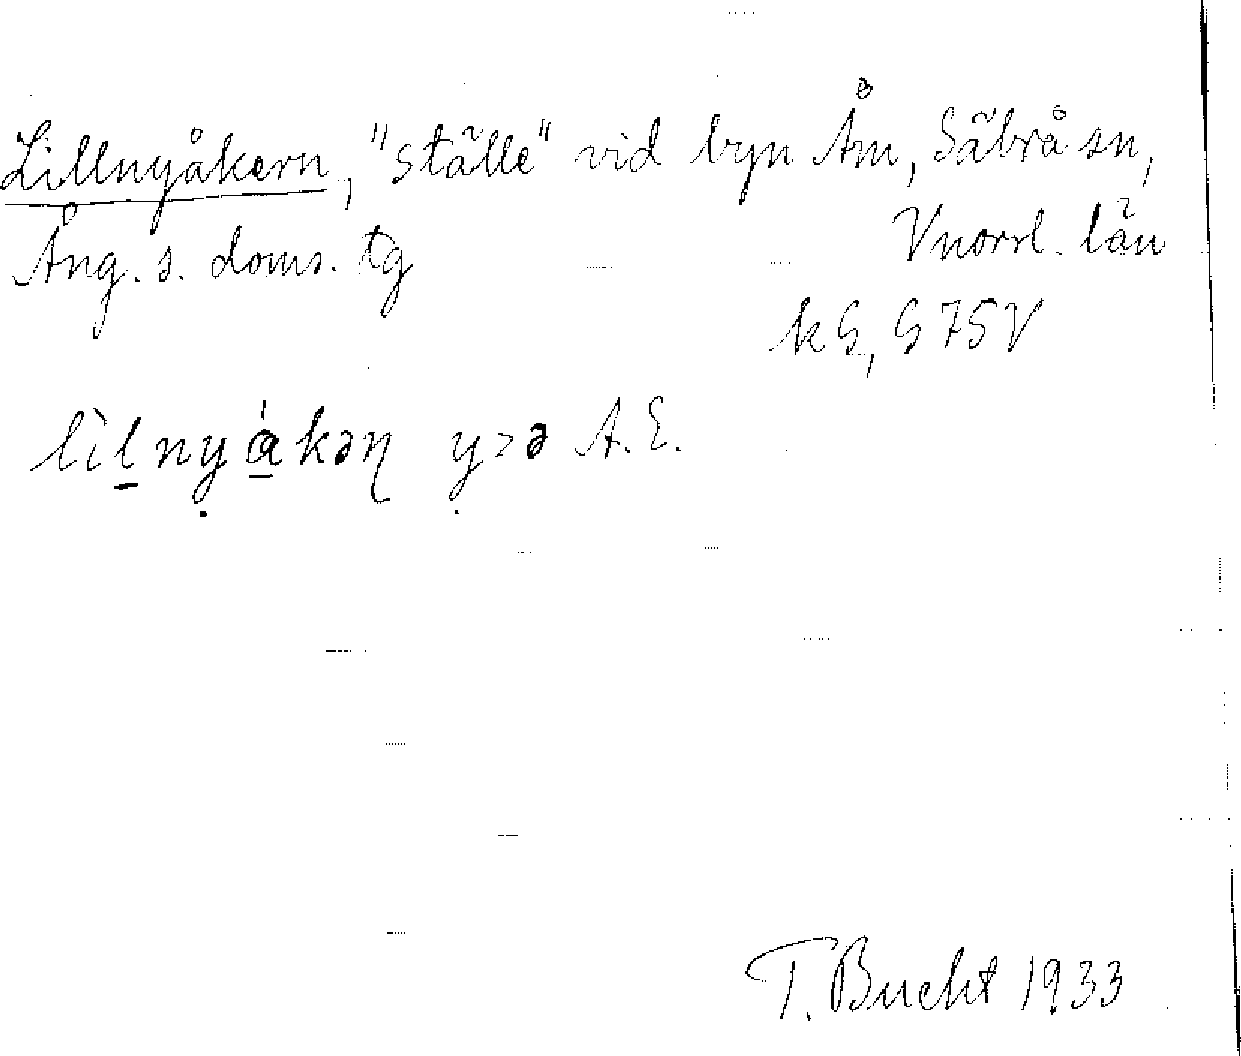 Lillnyåkern, "ställe" vid byn Åm, Säbrå sn,
Ång. s. doms. tg Vnorrl. län
kS, S 75V
lìlnyákən y>ə A.E.
T. Bucht 1933